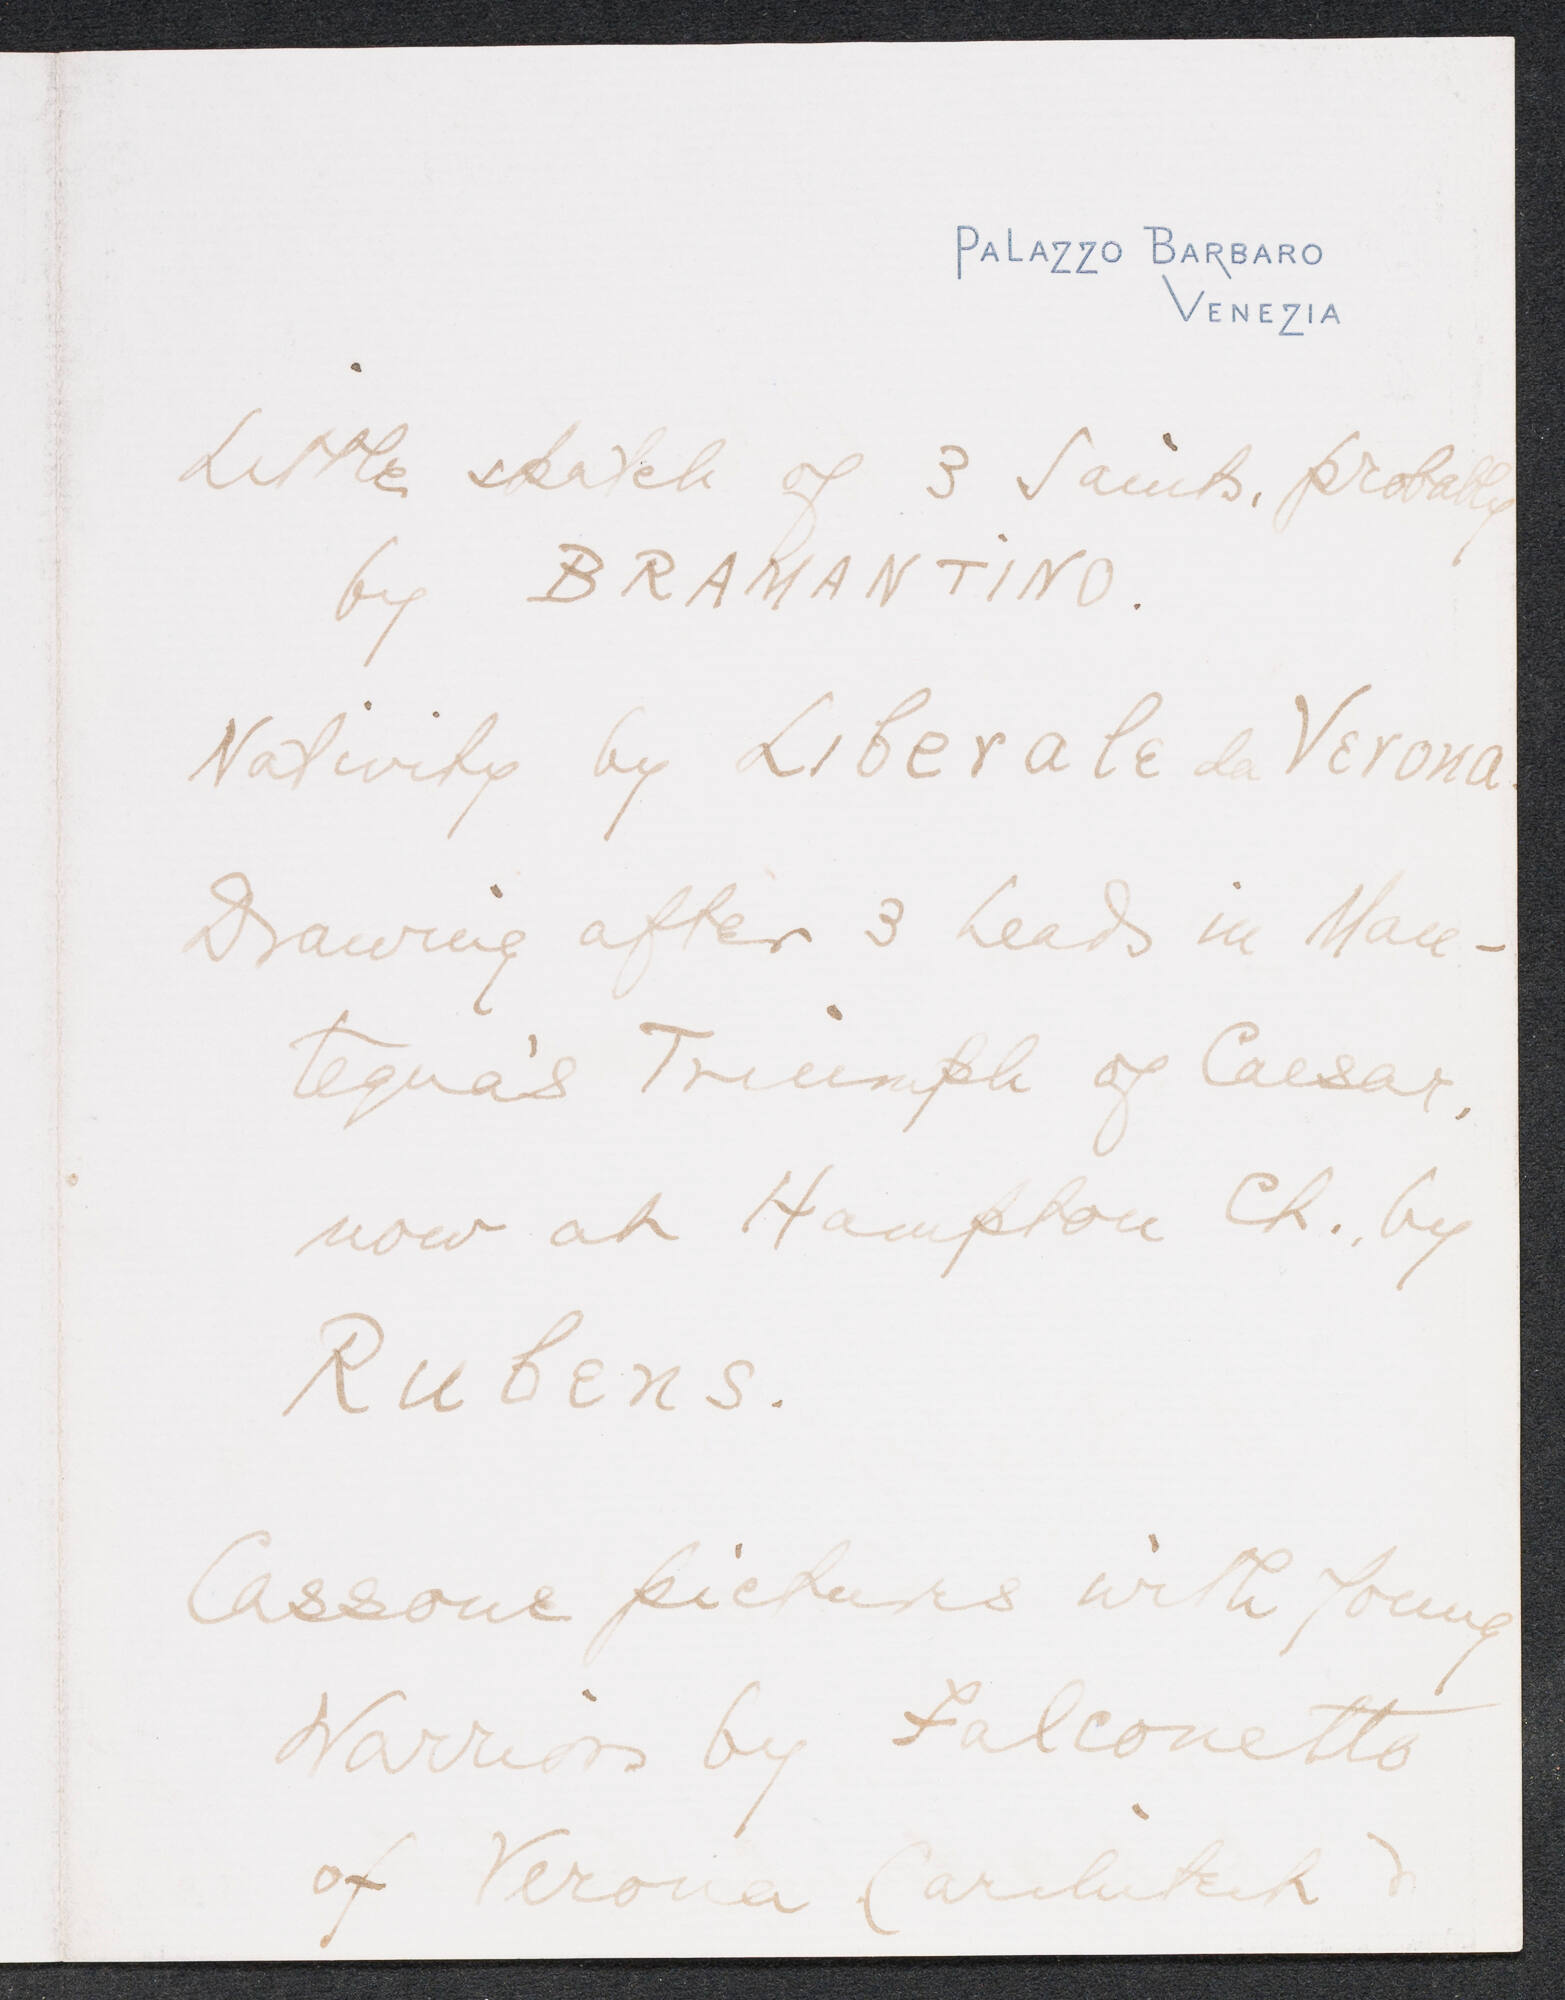 PALAZZO BARBARO
VENEZIA
Little sketch of 3 Saints, probably
by BRAMANTINO.
Nativity by Liberale da Verona.
Drawing after 3 heads in Man-
tegna's Triumph of Caesar,
now at Hampton Ct., by
Rubens.
Cassone pictures with young
Warriors by Falconetto
of Verona (architect &